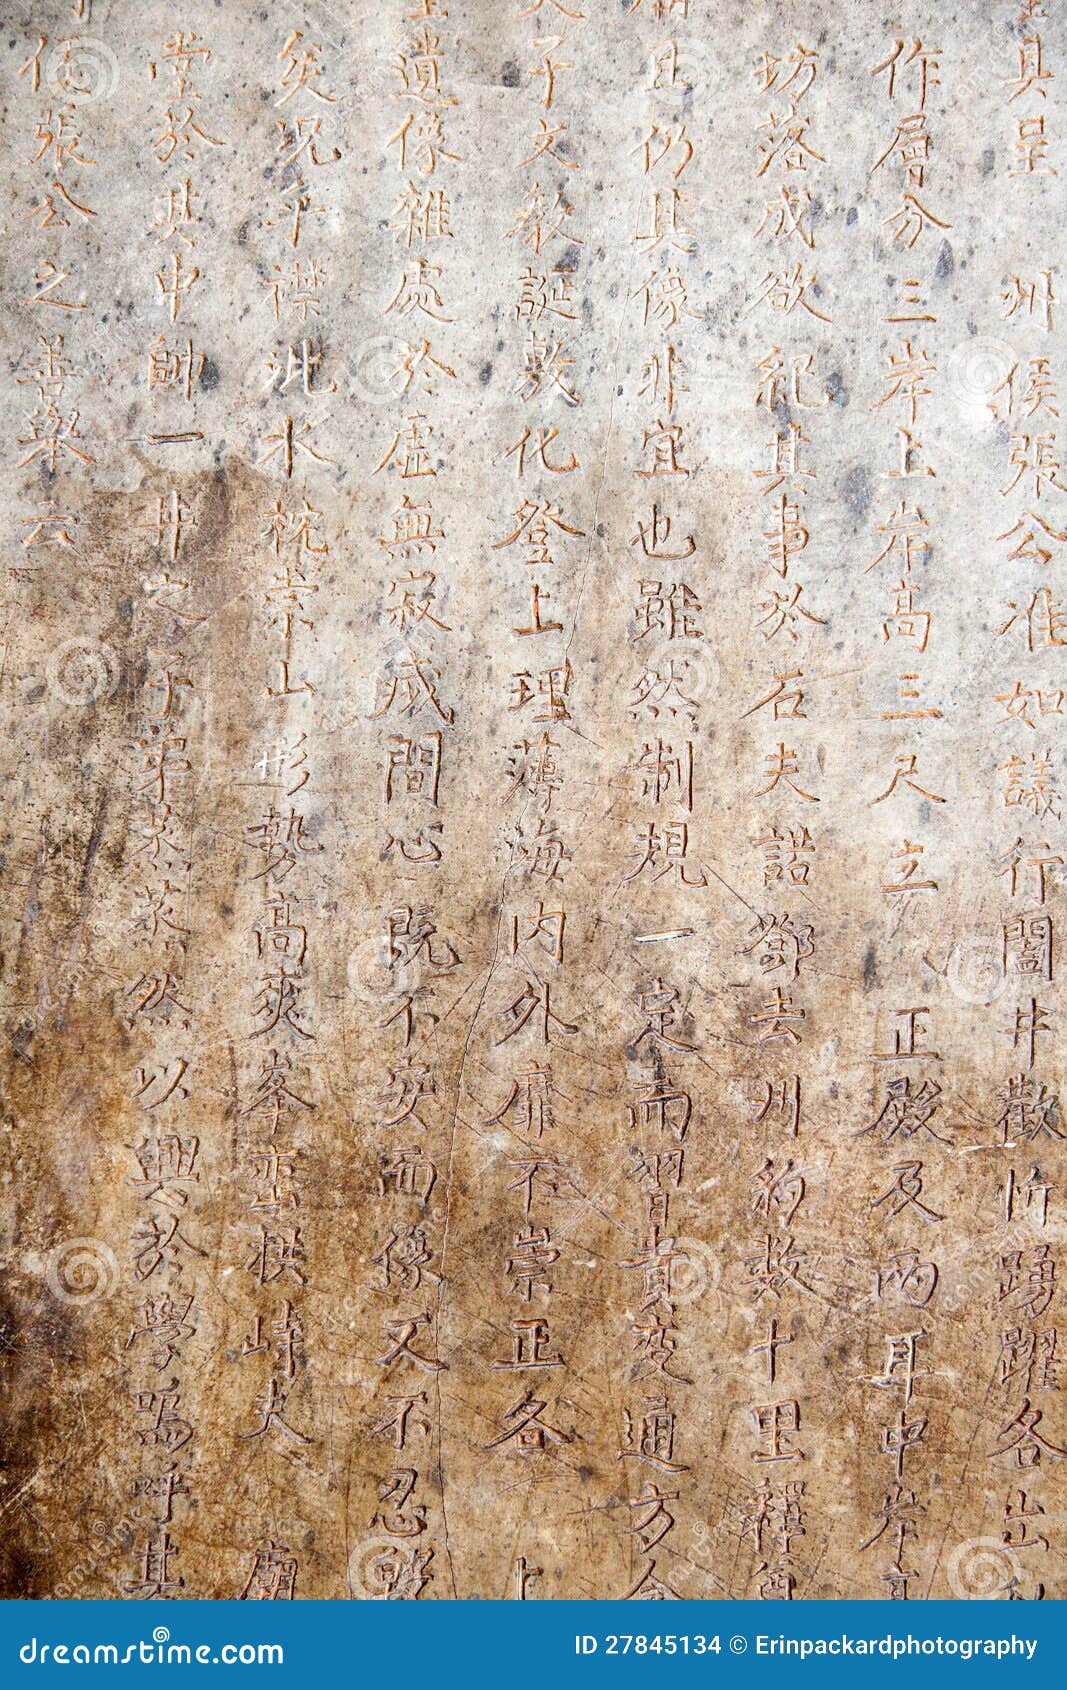 具呈 州侯張公准如議行闔井歡忻踴躍各出
作層分三岸上岸高三尺立 正殿及兩耳中岸
坊落成欲紀其事於石夫諾鄧去州約數十里釋
且仍其像非宜也雖然制規一定而習貴變通方
子文教誕敷化登上理薄海内外靡不崇正各 上
遺像雜處於虛無寂滅間心既不安而像又不忍
矣況乎襟泚水枕崇山形勢高爽峯巒拱峙夫 廟
堂於其中帥一井之子弟蒸蒸然以興於學嗚呼其
侯張公之善舉云
dreamstime.com
ID 27845134 © Erinpackardphotography